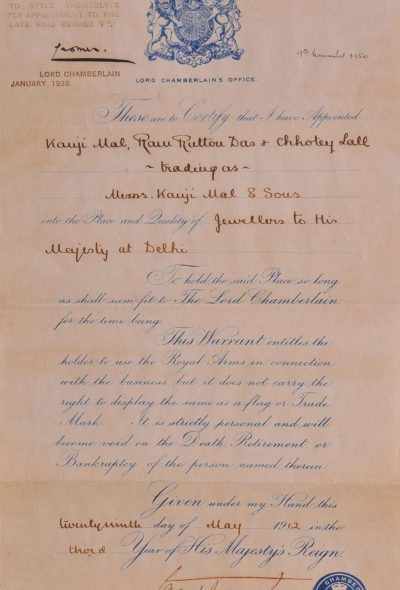 TO STYLE THEMSELVES
"BY APPOINTMENT TO THE
LATE KING GEORGE V".
Cromer.
LORD CHAMBERLAIN
JANUARY 1938.
LORD CHAMBERLAIN'S OFFICE.
1950
These are to Certify that I have Appointed
Kanji Mal, Ram Ruttou Das & Chhotey Lall
- trading as -
Messrs. Kanji Mal & Sons
into the Place and Quality of Jewellers to His
Majesty at Delhi
To hold the said Place so long
as shall seem fit to The Lord Chamberlain
for the time being.
This Warrant entitles the
holder to use the Royal Arms in connection
with the business, but it does not carry the
right to display the same as a flag or Trade
Mark. It is strictly personal and will
become void on the Death Retirement or
Bankruptcy of the person named therein.
Given under my Hand this
twentyninth day of May 1912 in the
third Year of His Majesty's Reign.
CHAMBERLAIN